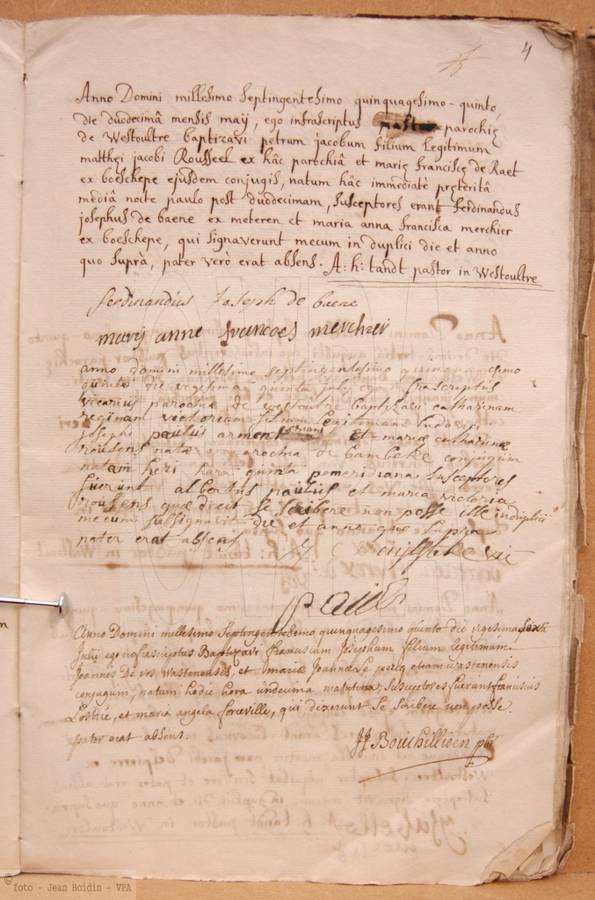 4
Anno Domini millesimo Septingentesimo quinquagesimo-quinto,
die duodecimâ mensis maij, ego infrascriptus pastor parochiæ
de Westoultre baptizavi petrum jacobum filium legitimum
matthei jacobi Rousseel ex hâc parochiâ et mariæ franciscæ de Raet
ex boeschepe ejusdem conjugis, natum hâc immediatè præteritâ
mediâ nocte paulo post duodecimam, susceptores erant ferdinandus
josephus de baene ex meteren et maria anna francisca merchier
ex boeschepe, qui signaverunt mecum in duplici die et anno
quo suprà, pater verò erat absens. A: h: tandt pastor in Westoultre
ferdinandus Joseph de baene
mary anne francoes merchier
anno domini millesimo septingentesimo quinquagesimo
quinto die vigesima quinta julij ego infrascriptus
vicarius parochiæ de westoultre baptizavi catharinam
reginam victoriam filiam legitimam
josephi paulus et mariæ catharinæ
natæ parochia de bambeke conjugum
natam heri hora quinta pomeridiana susceptores
fuerunt albertus paulus et maria victoria
quæ dicit se scribere non posse ille in duplici
mecum subsignavit die et anno quo supra
pater erat absens
Anno Domini millesimo Septingentesimo quinquagesimo quinto die vigesima sexta
Julii ego infrascriptus Baptizavi franciscum Josephum filium legitimum
Joannis De vos wastenensis, et mariæ Joannæ Le percq etiam wastenensis
conjugum, natum hodie hora undecima matutina, susceptores fuerunt franciscus
et maria angela qui dixerunt se scribere non posse.
pater erat absens.
foto - Jean Boidin - VPA